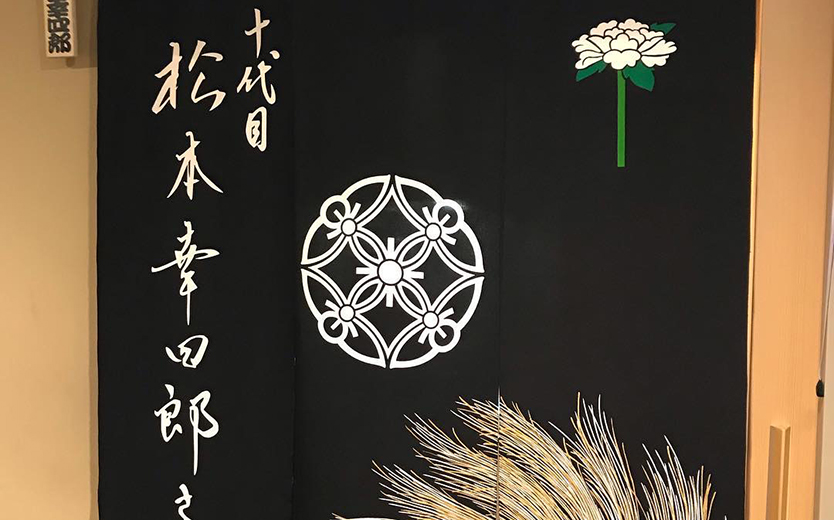 十代目
松本幸四郎さ
幸四郎